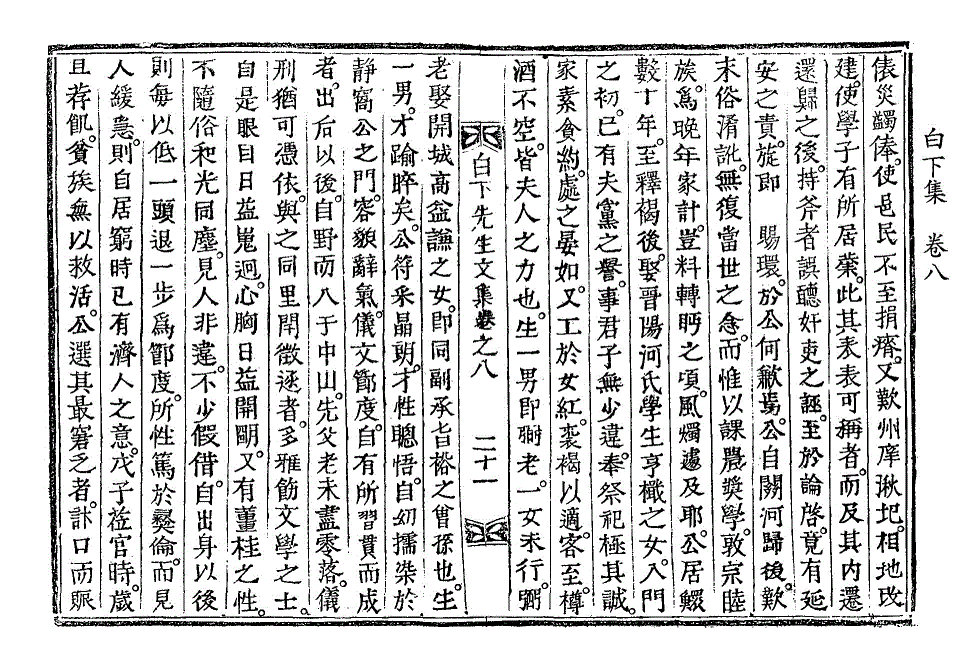 白下集　卷八
俵災蠲俸。使邑民不至捐瘠。又歎州庠湫圯。相地改
建。使學子有所居業。此其表表可稱者。而及其內遷
還歸之後。持斧者誤聽奸吏之誣。至於論啓。竟有延
安之責。旋卽　賜環。於公何歉焉。公自關河歸後。歎
末俗淆訛。無復當世之念。而惟以課農奬學。敦宗睦
族。爲晩年家計。豈料轉眄之頃。風燭遽及耶。公居鰥
數十年。至釋褐後。娶晋陽河氏學生亨檝之女。入門
之初。已有夫黨之譽。事君子無少違。奉祭祀極其誠。
家素貧約。處之晏如。又工於女紅。裘褐以適。客至樽
酒不空。皆夫人之力也。生一男卽弼老。一女未行。弼
白下先生文集卷之八　二十一
老娶開城高益謙之女。卽同副承旨㮨之曾孫也。生
一男。才踰晬矣。公符采晶朗。才性聰悟。自幼擩染於
靜窩公之門。容貌辭氣。儀文節度。自有所習貫而成
者。出后以後。自野而入于中山。先父老未盡零落。儀
刑猶可憑依。與之同里閈徵逐者。多雅飭文學之士。
自是眼目日益嵬迥。心胸日益開朗。又有薑桂之性。
不隨俗和光同塵。見人非違。不少假借。自出身以後
則每以低一頭退一步爲節度。所性篤於彝倫。而見
人緩急。則自居窮時已有濟人之意。戊子莅官時。歲
且荐飢。貧族無以救活。公選其最窘乏者。計口而賑